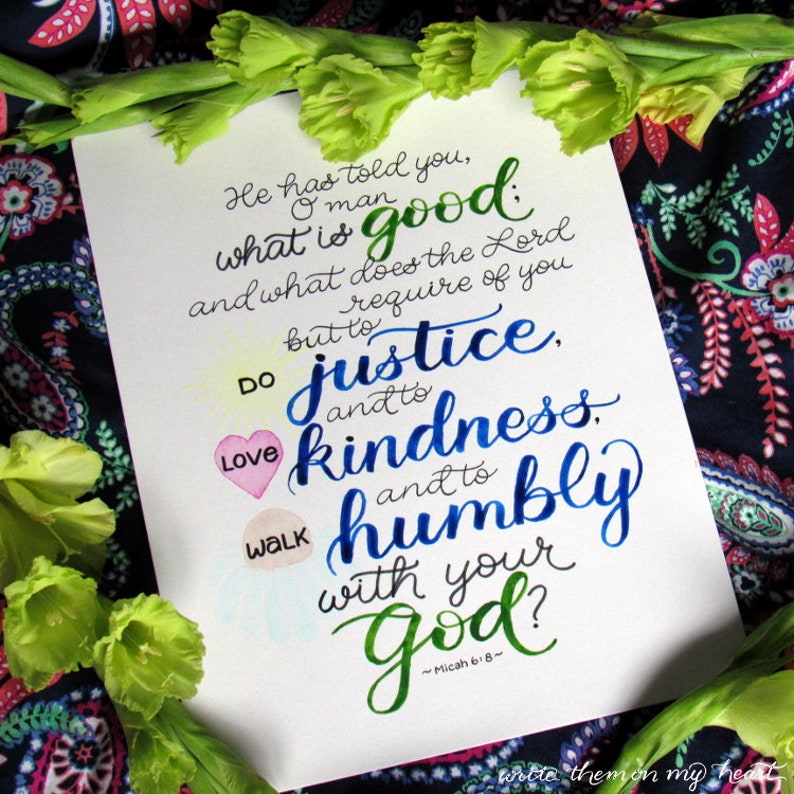 He has told you,
O man
what is good;
and what does the Lord
require of you
but to
DO justice,
and to
LOVE kindness,
and to
WALK humbly
with your
God?
~Micah 6:8~
write them on my heart